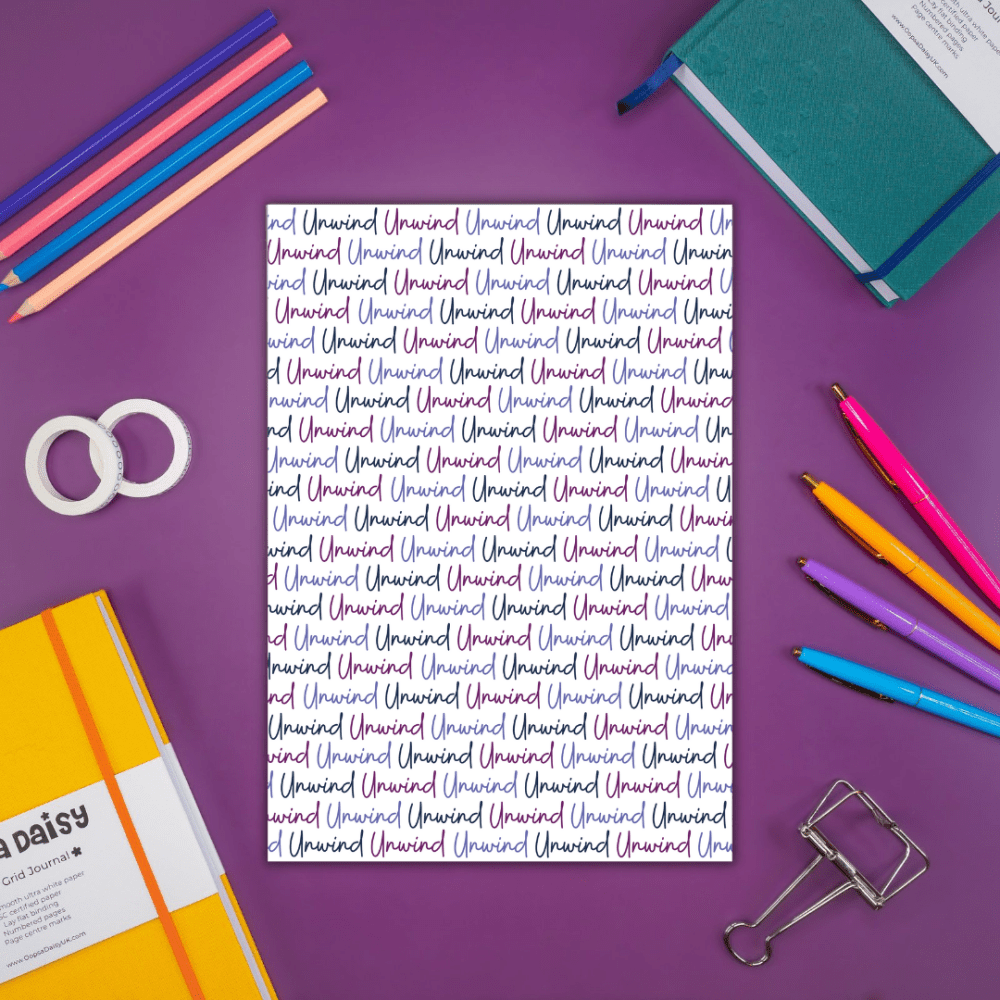 www.OopsaDaisyUK.com
Numbered pages
Page centre marks
ind Unwind Unwind Unwind Unwind Unwind Un
Unwind Unwind Unwind Unwind Unwind Unwin
wind Unwind Unwind Unwind Unwind Unwind U
Unwind Unwind Unwind Unwind Unwind Unwi
wind Unwind Unwind Unwind Unwind Unwind
d Unwind Unwind Unwind Unwind Unwind Unw
nwind Unwind Unwind Unwind Unwind Unwind
nd Unwind Unwind Unwind Unwind Unwind Un
Unwind Unwind Unwind Unwind Unwind Unwin
ind Unwind Unwind Unwind Unwind Unwind U
Unwind Unwind Unwind Unwind Unwind Unwi
wind Unwind Unwind Unwind Unwind Unwind U
d Unwind Unwind Unwind Unwind Unwind Unw
nwind Unwind Unwind Unwind Unwind Unwind
nd Unwind Unwind Unwind Unwind Unwind Un
Unwind Unwind Unwind Unwind Unwind Unwin
nd Unwind Unwind Unwind Unwind Unwind U
Unwind Unwind Unwind Unwind Unwind Unwin
wind Unwind Unwind Unwind Unwind Unwind U
d Unwind Unwind Unwind Unwind Unwind Unw
wind Unwind Unwind Unwind Unwind Unwind
d Unwind Unwind Unwind Unwind Unwind Un
a Daisy
Grid Journal
mooth ultra white paper
SC certified paper
Lay flat binding
Numbered pages
Page centre marks
www.OopsaDaisyUK.com